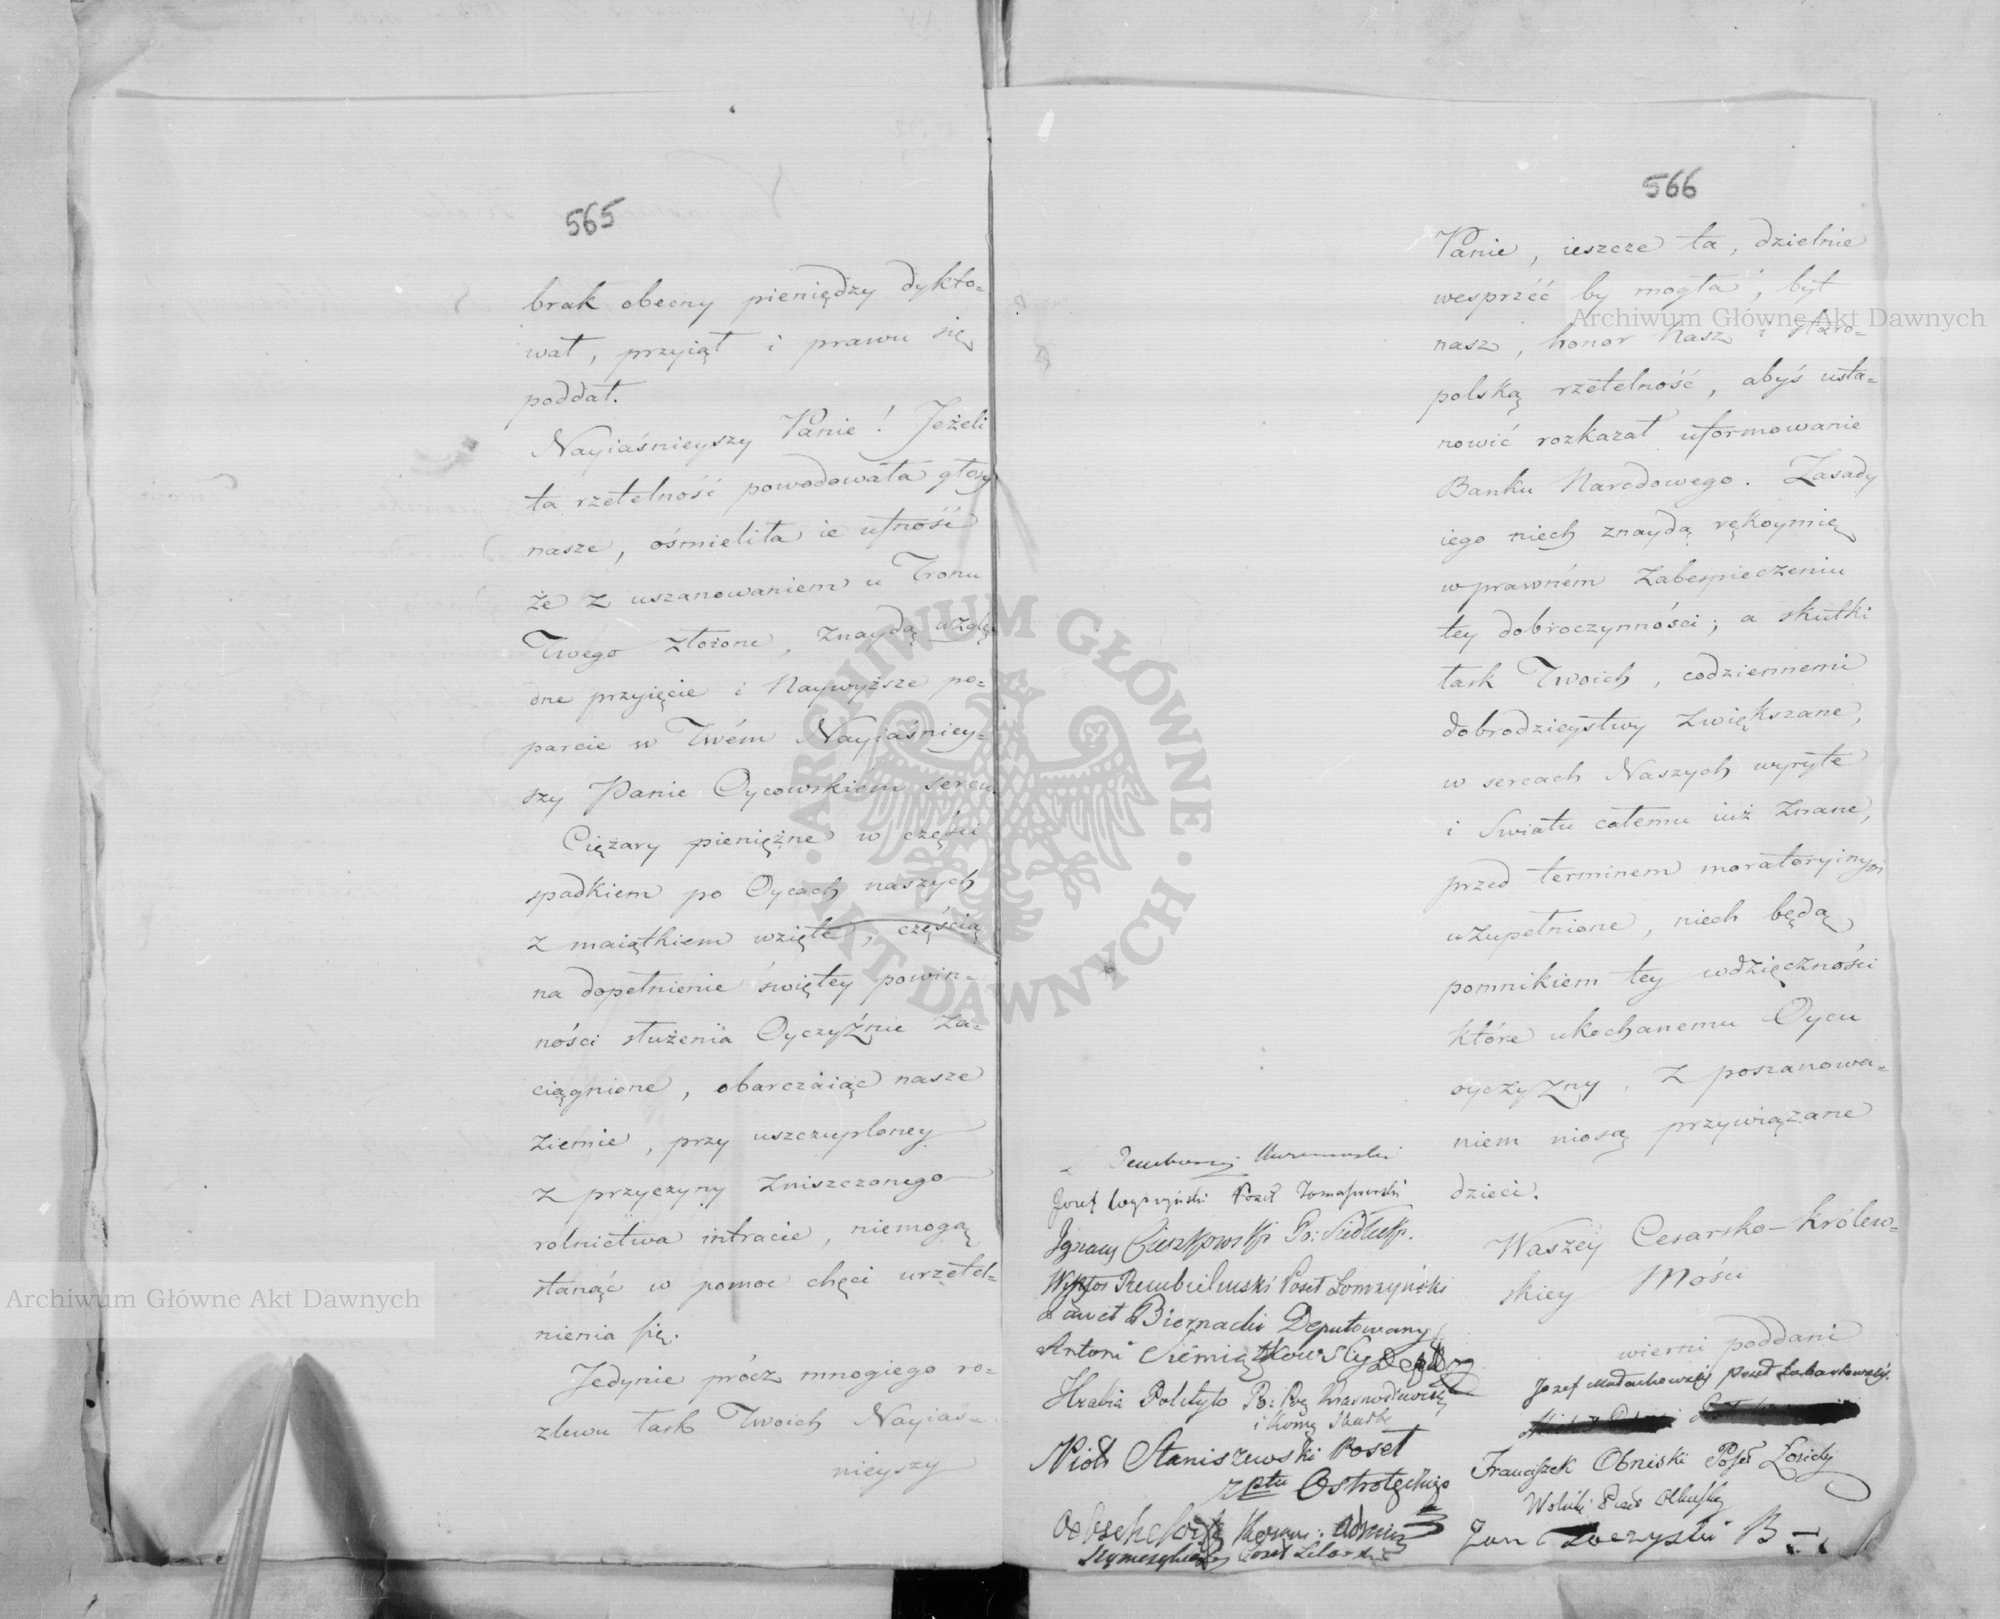 565
brak obecny pieniędzy dykto-
wał, przyiął i prawu się
poddał.
Nayiaśnieyszy Panie! Jeżeli
ta rzetelność powodowała głosy
nasze, ośmieliła ie ufność
że z uszanowaniem u Tronu
Twego złożone, znaydą wzglę-
dne przyięcie i Naywyższe po-
parcie w Twém Nayiaśniey-
szy Panie Oycowskiém sercu
Ciężary pieniężne w części
spadkiem po Oycach naszych
z maiątkiem wzięte, częścią
na dopełnienie świętey powin-
ności służenia Oyczyźnie za-
ciągnione, obarczaiąc nasze
ziemie, przy uszczuploney
z przyczyny zniszczonego
rolnictwa intracie, niemogą
stanąć w pomoc chęci urzetel-
nienia się.
Jedynie prócz mnogiego ro-
zlewu łask Twoich Nayiaś-
nieyszy
566
Panie, ieszcze ta, dzielnie
wesprzéć by mogła, byt
nasz, honor Nasz i staro-
polską rzetelność, abyś usta-
nowić rozkazał uformowanie
Banku Narodowego. Zasady
iego niech znaydą rękoymię
w prawném zabespieczeniu
tey dobroczynności; a skutki
łask Twoich, codziennemi
dobrodzieystwy zwiększane,
w sercach Naszych wyryte
i Światu całemu iuż znane,
przed terminem moratoryinym
uzupełnione, niech będą
pomnikiem tey wdzięczności
które ukochanemu Oycu
oyczyzny, z poszanowa-
niem niosą przywiązane
dzieci.
Waszéy Cesarsko-Królew-
skiey Mości
wierni poddani
Józef Małachowski Poseł Lubartowski
Franciszek Obniski Poseł Łosicki
Wolicki Poseł Olkuski
Jan
Józef Poseł Tomaszowski
Ignacy Cieszkowski Po: Siedlecki
Wiktor Rembieliński Poseł Łomżyński
Paweł Biernacki Deputowany
Antoni Siemiątkowski Deputow
Hrabia Poletyło Po: Pow Krasnostawski
i Kom Skarb
Piotr Staniszewski Poseł
z Ptu Ostrołęckiego
Poseł
Archiwum Główne Akt Dawnych
Archiwum Główne Akt Dawnych
ARCHIWUM GŁÓWNE · AKT DAWNYCH ·